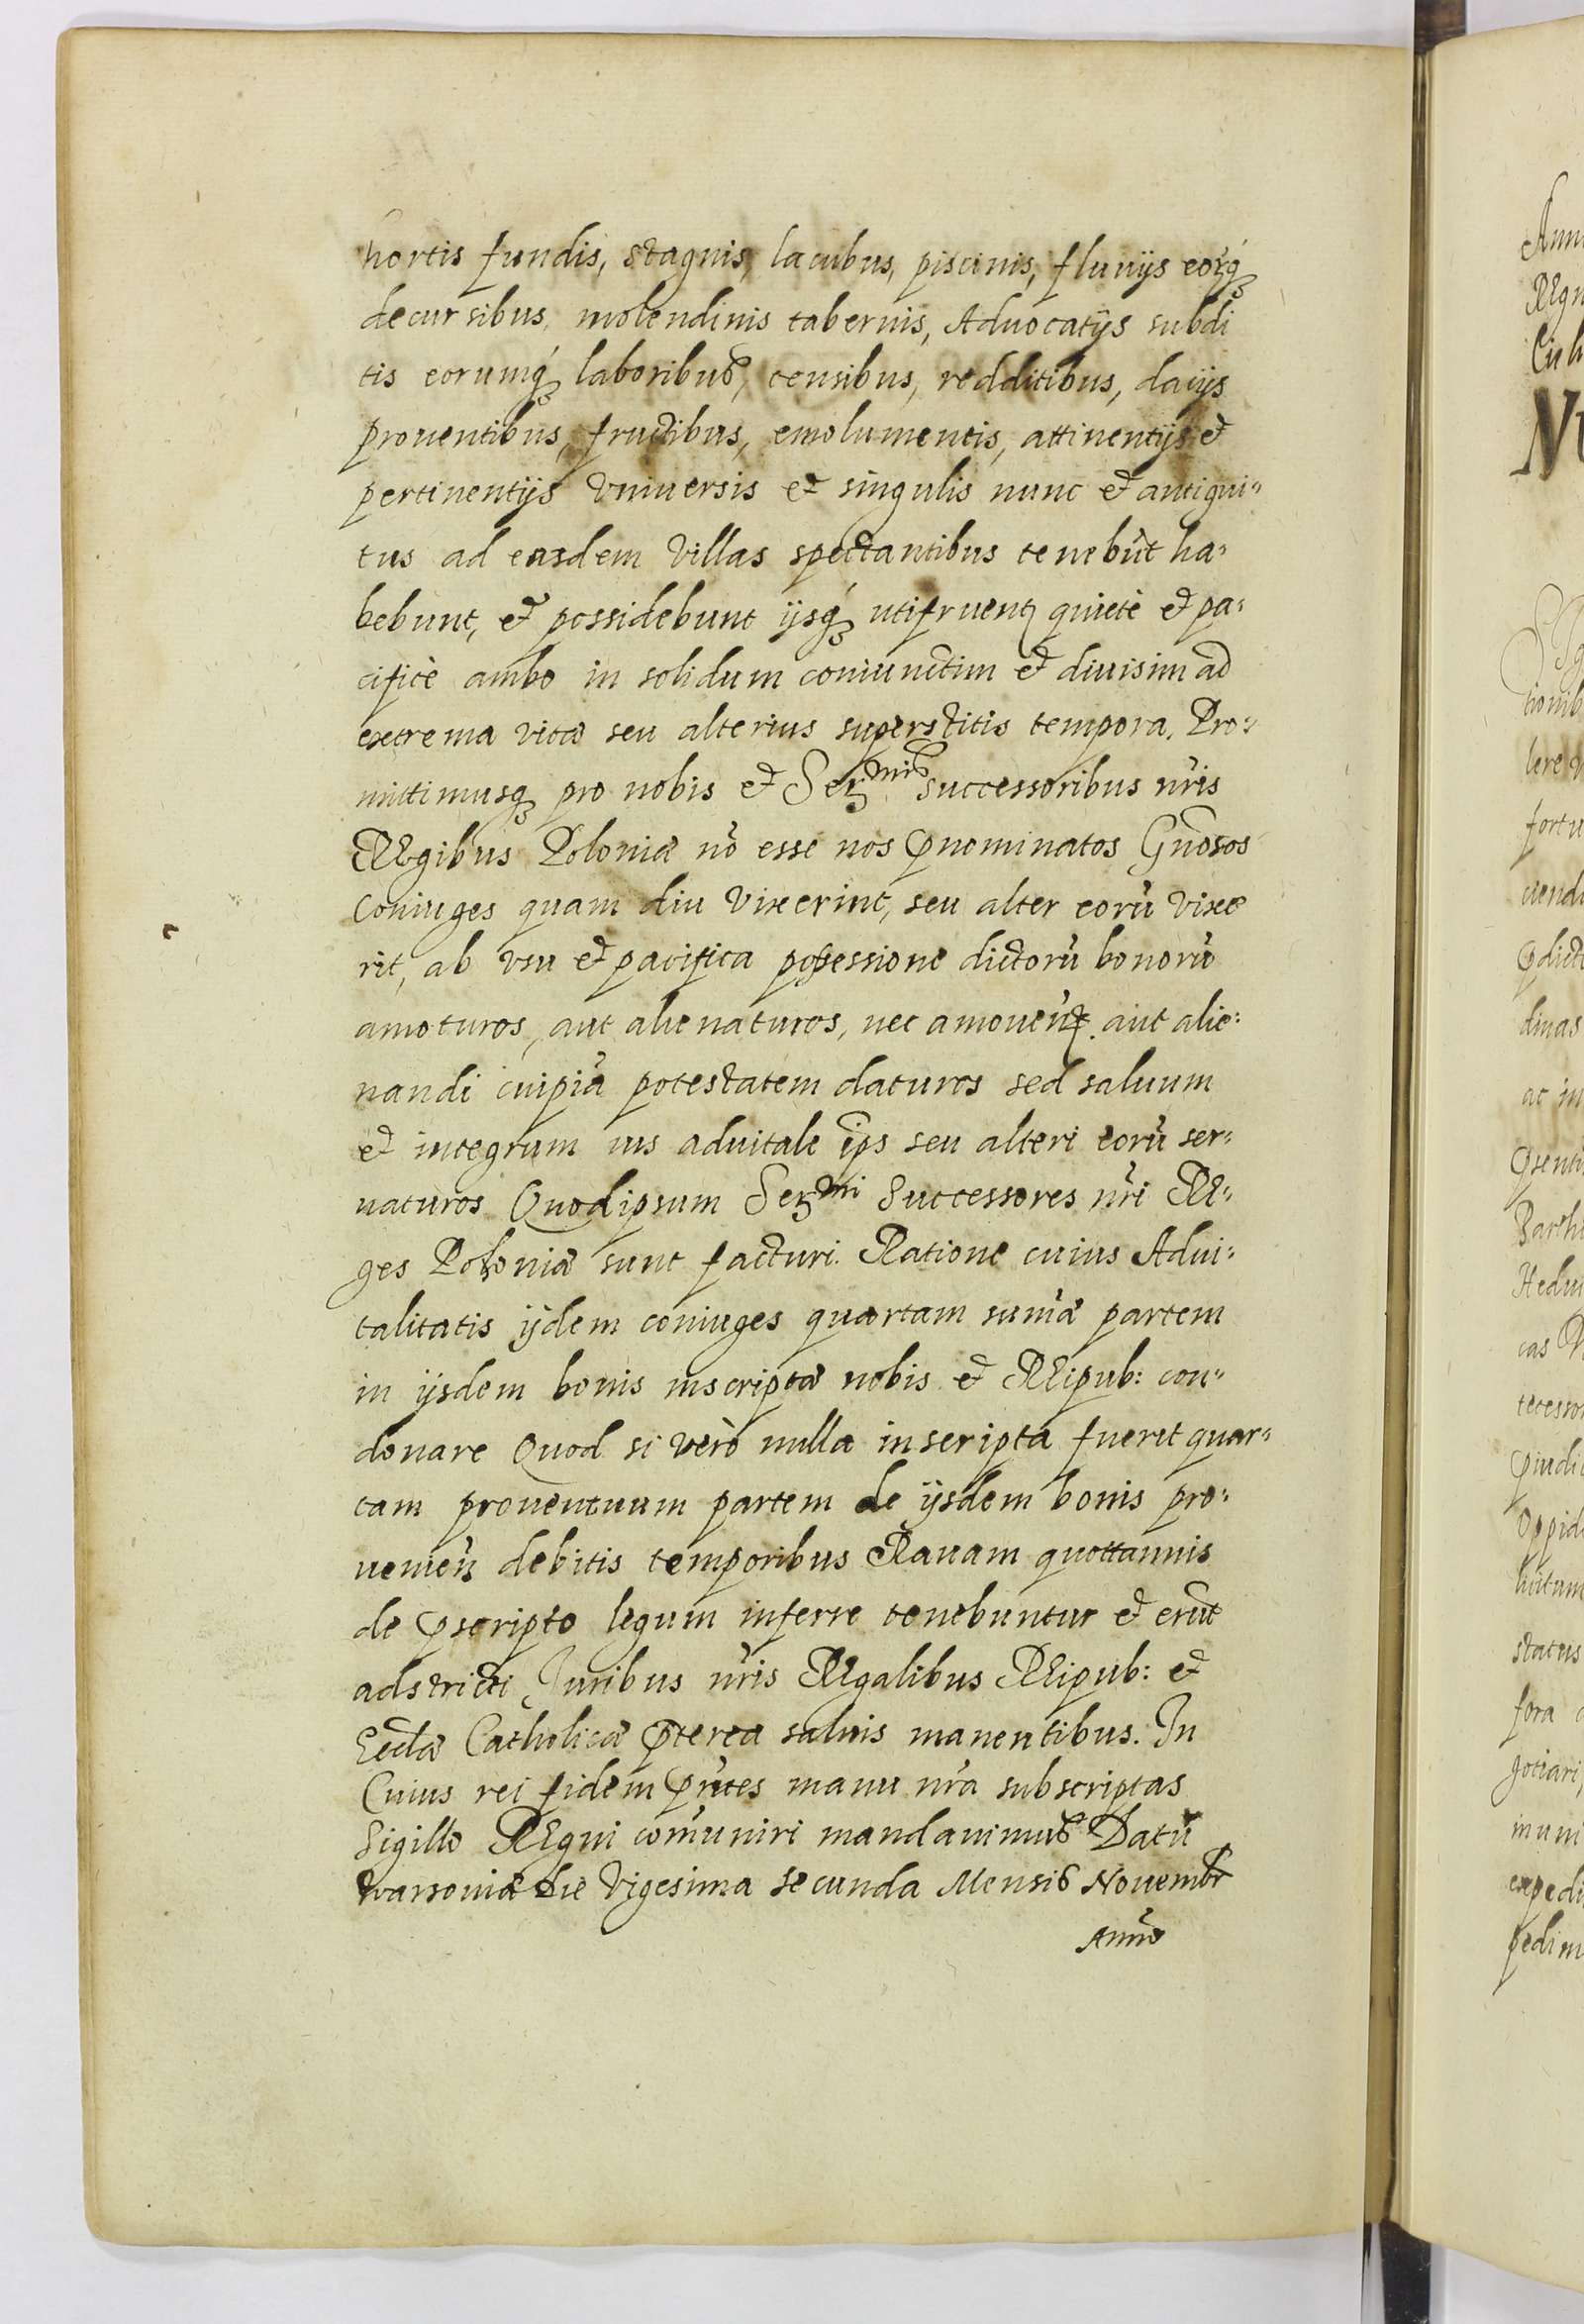 hortis fundis, stagnis, lacubus, piscinis, fluvijs eorq́ꝫ
decursibus, molendinis tabernis, Aduocatijs subdi
tis eorumq́ꝫ laboribus, censibus, redditibus, dacijs
prouentibus, fructibus, emolumentis, attinentijs et
pertinentijs Vniuersis et singulis nunc et antiqui-
tus ad easdem Villas spectantibus tenebūt ha-
bebunt, et possidebunt ijsq́ꝫ utifruentꝫ quietè et pa-
cificè ambo in solidum coniunctim et diuisim ad
extrema vitæ seu alterius superstitis tempora. Pro-
mittimusqꝫ pro nobis et Serᵐⁱˢ Successoribus nr̃is
Regibus Poloniæ nō esse nos p̄nominatos Gn̄osos
Coniuges quam diu Vixerint, seu alter eorū vixe
rit, ab vsu et pacifica possessione dictorū bonorū
amoturos, aut alienaturos, nec amouen̄. aut alie-
nandi cuipiā potestatem daturos sed saluum
et integrum ius aduitale ip̄s seu alteri eorū ser-
uaturos Quodipsum Serᵐⁱ Successores nr̃i Re-
ges Poloniæ sunt facturi. Ratione cuius Adui-
talitatis ijdem coniuges quartam sum̄æ partem
in ijsdem bonis inscriptæ nobis et Reipub: con-
donare Quod si verò nulla inscripta fuerit quar-
tam prouentuum partem de ijsdem bonis pro-
uenien̄ debitis temporibus Rauam quottannis
de p̄scripto legum inferre tenebuntur et erūt
adstricti Juribus nr̃is Regalibus Reipub: et
Eccl̄æ Catholicæ p̄terea saluis manentibus. In
Cuius rei fidem pn̄tes manu nr̃a subscriptas
Sigillo Regni com̄uniri mandauimus Datū
Warsouiæ Die Vigesima secunda Mensis Nouembr
Anno